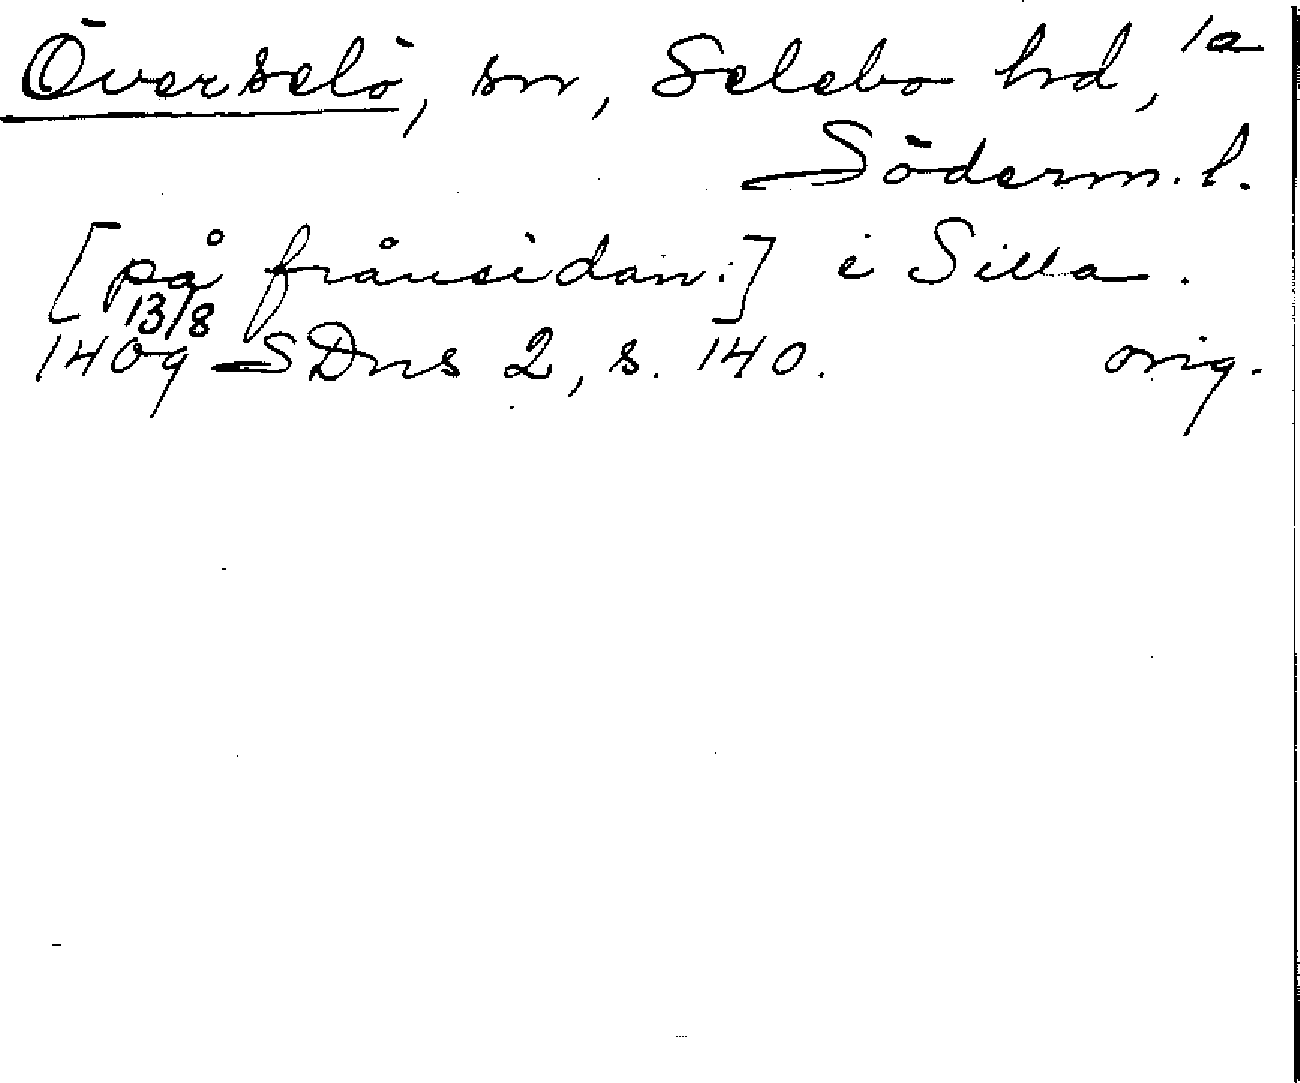 Överselö, sn, Selebo hd, 1a
Söderm. l.
[på frånsidan:] i Silla.
13/8
1409 SDns 2, s. 140. orig.